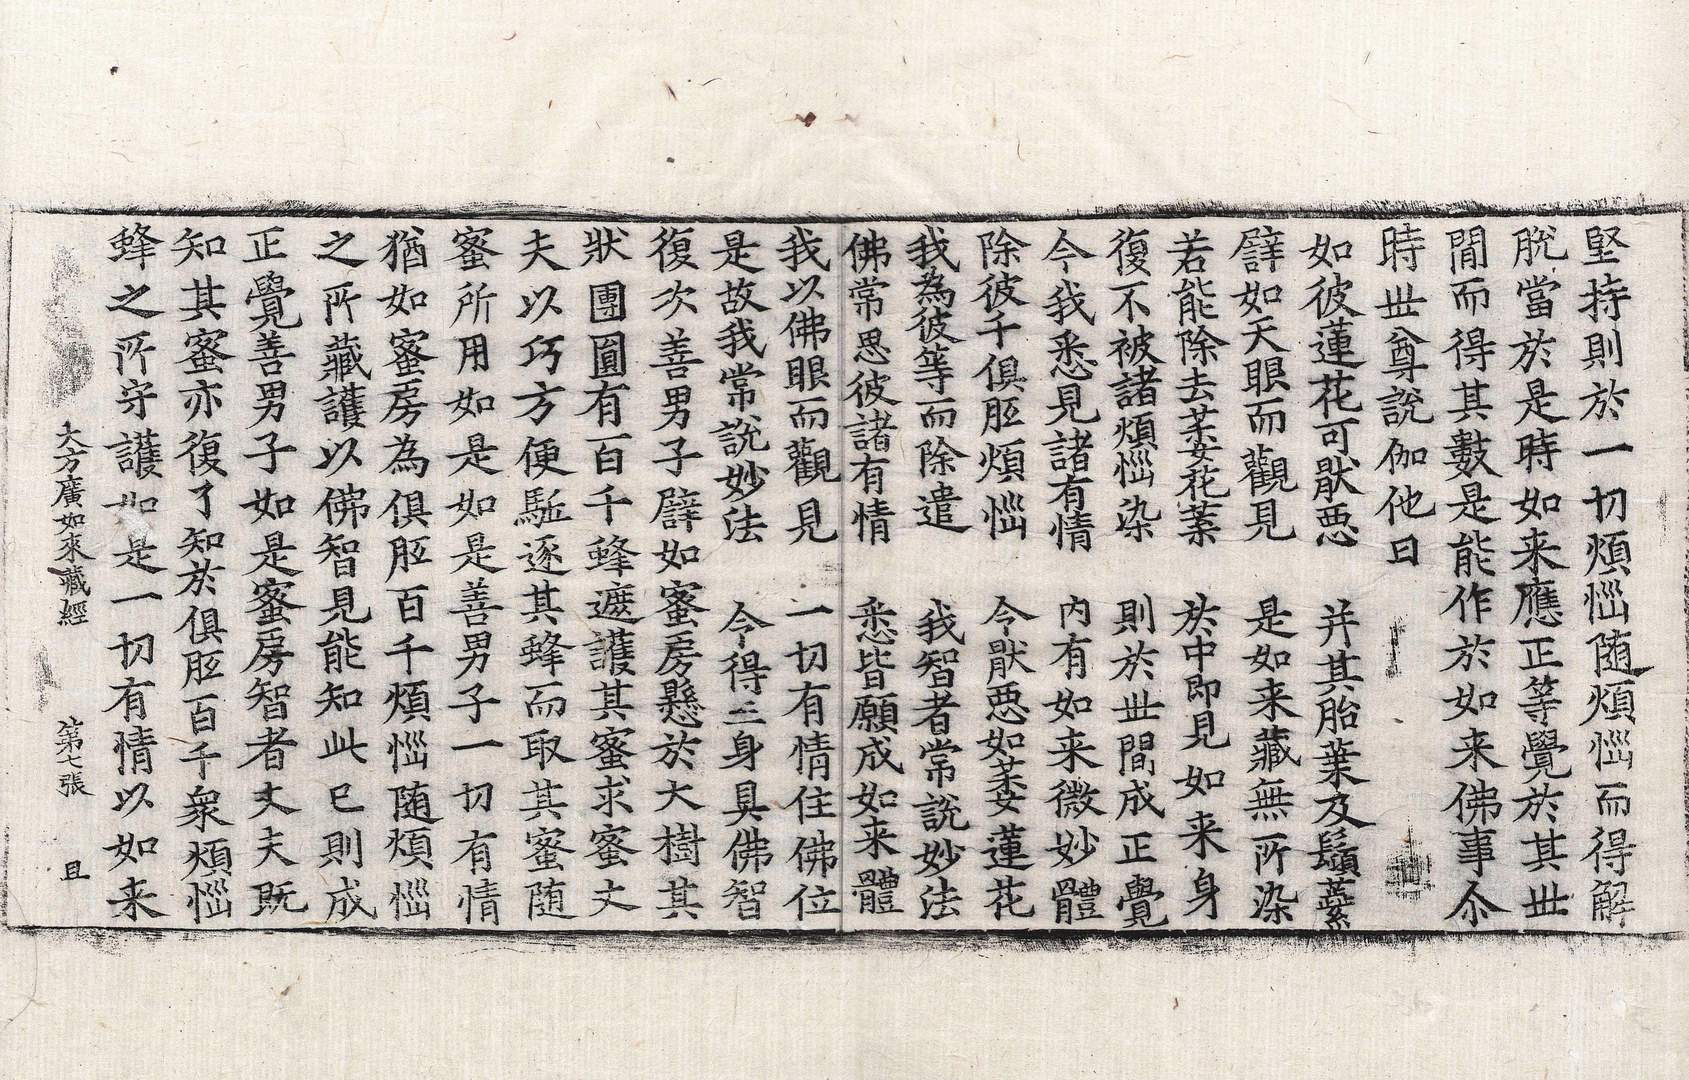 堅持則於一切煩惱随煩惱而得解
脫當於是時如来應正等覺於其世
間而得其數是能作於如来佛事尒
時世尊說伽他曰
如彼蓮花可厭惡　并其胎葉及鬚蘂
譬如天眼而觀見　是如来藏無所染
若能除去萎花葉　於中即見如来身
復不被諸煩惱染　則於世間成正覺
今我悉見諸有情　内有如来微妙體
除彼千俱胝煩惱　令厭惡如萎蓮花
我為彼等而除遣　我智者常說妙法
佛常思彼諸有情　悉皆願成如来體
我以佛眼而觀見　一切有情住佛位
是故我常說妙法　令得三身具佛智
復次善男子譬如蜜房懸於大樹其
狀團圓有百千蜂遮護其蜜求蜜丈
夫以巧方便駈逐其蜂而取其蜜随
蜜所用如是如是善男子一切有情
猶如蜜房為俱胝百千煩惱随煩惱
之所藏護以佛智見能知此已則成
正覺善男子如是蜜房智者丈夫既
知其蜜亦復了知於俱胝百千衆煩惱
蜂之所守護如是一切有情以如来
大方廣如來藏經　第七張　且